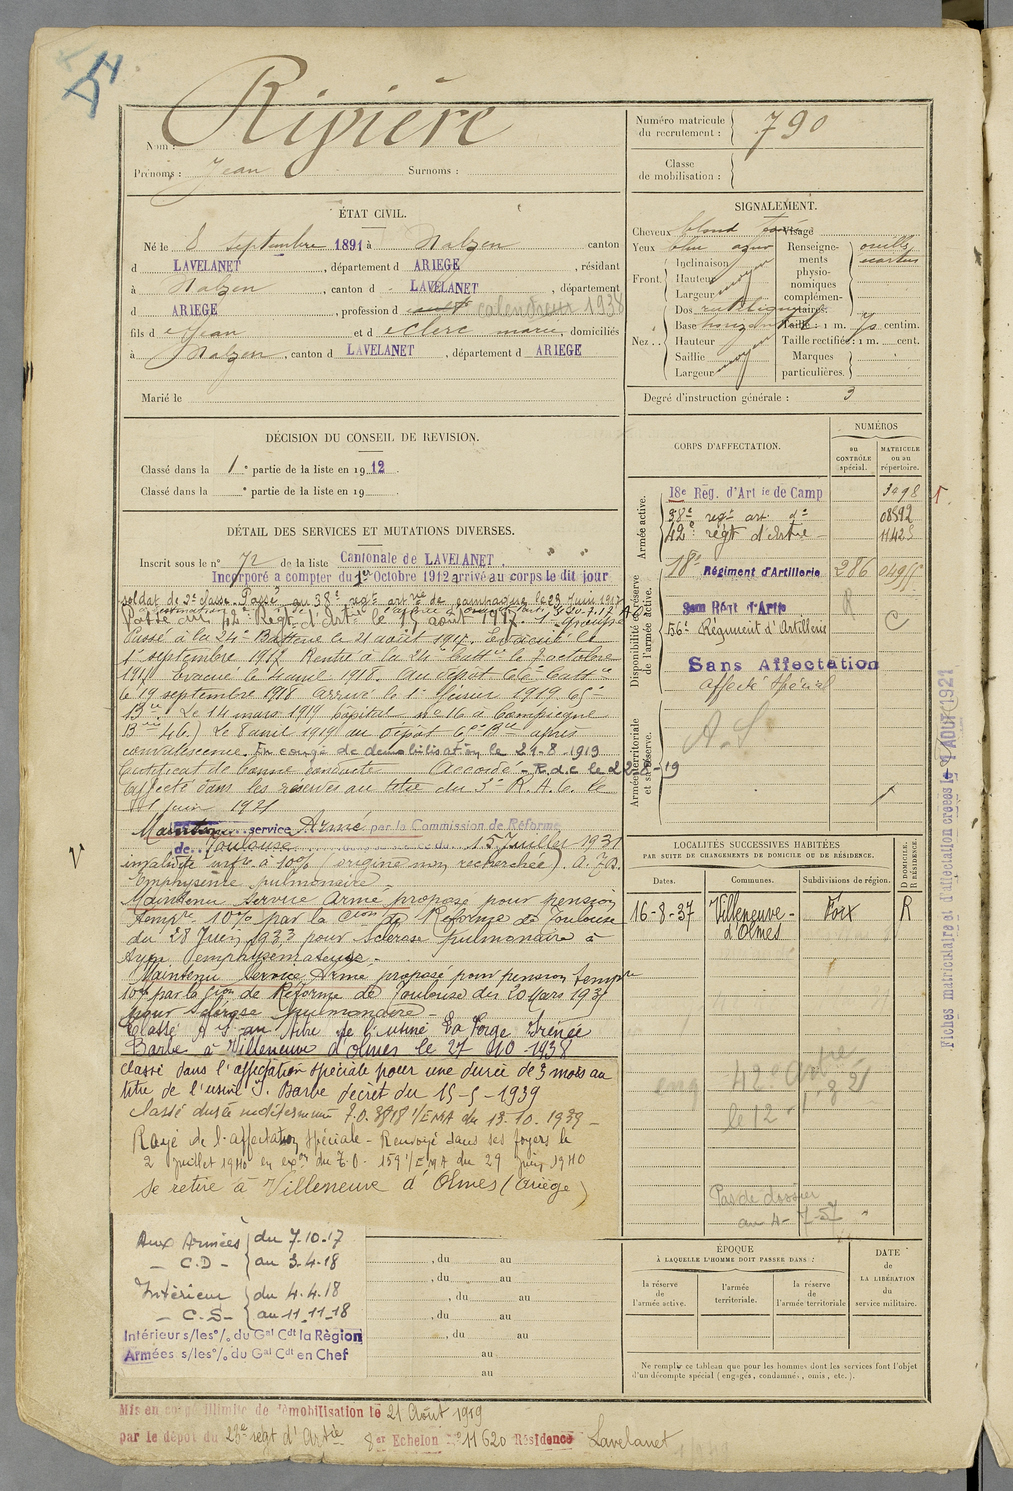 Nom : Ripière
Prénoms : Jean Surnoms :
Numéro matricule du recrutement : 790
Classe de mobilisation :
ÉTAT CIVIL.
Né le 8 septembre 1891 à Nalzen canton
d LAVELANET, département d ARIEGE, résidant
à Nalzen, canton d LAVELANET, département
d ARIEGE, profession d cult calendreur 1938
fils d e Jean et d e Clerc marie, domiciliés
à Nalzen, canton d LAVELANET, département d ARIEGE
Marié le
SIGNALEMENT.
Cheveux blond
Visage
Yeux bleu azur
Renseignements physionomiques complémentaires
oreilles écartées
Front. Inclinaison
Hauteur
Largeur moyen
Nez.. Dos rectiligne
Base horizontale
Hauteur
Saillie
Largeur moyen
Taille : 1 m. 70 centim.
Taille rectifiée : 1 m. cent.
Marques particulières.
Degré d'instruction générale : 3
DÉCISION DU CONSEIL DE REVISION.
Classé dans la 1e partie de la liste en 1912.
Classé dans la e partie de la liste en 19
CORPS D'AFFECTATION.
NUMÉROS
au CONTRÔLE spécial.
MATRICULE ou au répertoire.
Armée active.
18e Rég. d'Artie de Camp 3098
38e regt art. d° 08592
42e régt d'artie
Disponibilité et réserve de l'armée active.
18e Régiment d'Artillerie 286
R
56e Régiment d'Artillerie C
Sans Affectation
affecté spécial
Armée territoriale et sa réserve.
A.S
DÉTAIL DES SERVICES ET MUTATIONS DIVERSES.
Inscrit sous le n° 72 de la liste Cantonale de LAVELANET.
Incorporé a compter du 1er Octobre 1912 arrivé au corps le dit jour
soldat de 2e classe. Passé au 38e regt artie de campagne le 23 Juin 1917
Passé au 42e Régt d'Artie le 15 août 1917. 1er Groupe
Passé à la 24e Batterie le 21 août 1917. Evacué le
1er septembre 1917 Rentré à la 24e Battie le 7 octobre
1917 Evacué le 4 avril 1918. Au dépôt 66e Battie
le 19 septembre 1918 arrivé le 1er février 1919 65e
Bie. Le 14 mars 1919 hôpital n° 16 à Compiègne
Le 8 avril 1919 au Dépôt Bie après
convalescence. En congé de démobilisation le 21-8-1919
Certificat de bonne conduite Accordé - R.d.c le 22-8-19
Affecté dans les réserves au titre du 3e R.A.C. le
1er juin 1921
Maintenu service Armé par la Commission de Réforme
de Toulouse du 15 Juillet 1931
invalidité infre à 10% (origine non recherchée).
Emphysème pulmonaire -
Maintenu Service Armé proposé pour pension
tempre 10% par la Cion de Réforme de Toulouse
du 28 Juin 1933 pour sclérose pulmonaire à
type emphysémateuse -
Maintenu Service Armé proposé pour pension tempre
10% par la Cion de Réforme de Toulouse du 20 Mars 1935
pour sclérose pulmonaire -
Classé A S au titre de l'usine La Forge Irénée
Barbe à Villeneuve d'Olmes le 27 10 1938
classé dans l'affectation spéciale pour une durée de 3 mois au
titre de l'usine I. Barbe décret du 15-5-1939
classé durée indéterminée T.O. 3818 1/EMA du 13.10.1939 -
Rayé de l'affectation spéciale - Renvoyé dans ses foyers le
2 juillet 1940 en exon du T.O. 159 1/EMA du 29 juin 1940
se retire à Villeneuve d'Olmes (Ariège)
LOCALITÉS SUCCESSIVES HABITÉES
PAR SUITE DE CHANGEMENTS DE DOMICILE OU DE RÉSIDENCE.
Dates. Communes. Subdivisions de région. D DOMICILE. R RÉSIDENCE.
16-8-37 Villeneuve-d'Olmes Foix R
42e Artie
le 12
Pas de dossier
au 4-7-57
Fiches matriculaire et d'affectation créées le 1 AOUT 1921
Aux Armées du 7.10.17
- C.D - au 3.4.18
Intérieur du 4.4.18
- C.S - au 11.11.18
Intérieur s/les°/. du Gal Cdt la Règion
Armées s/les°/. du Gal Cdt en Chef
, du au
, du au
, du au
, du au
, du au
au
au
ÉPOQUE
À LAQUELLE L'HOMME DOIT PASSER DANS :
la réserve de l'armée active.
l'armée territoriale.
la réserve de l'armée territoriale
DATE de LA LIBÉRATION du service militaire.
Ne remplir ce tableau que pour les hommes dont les services font l'objet
d'un décompte spécial (engagés, condamnés, omis, etc.).
Mis en congé illimité de démobilisation le 21 Août 1919
par le dépôt du 23e regt d'Artie 8er Echelon n° 11620 Résidence Lavelanet